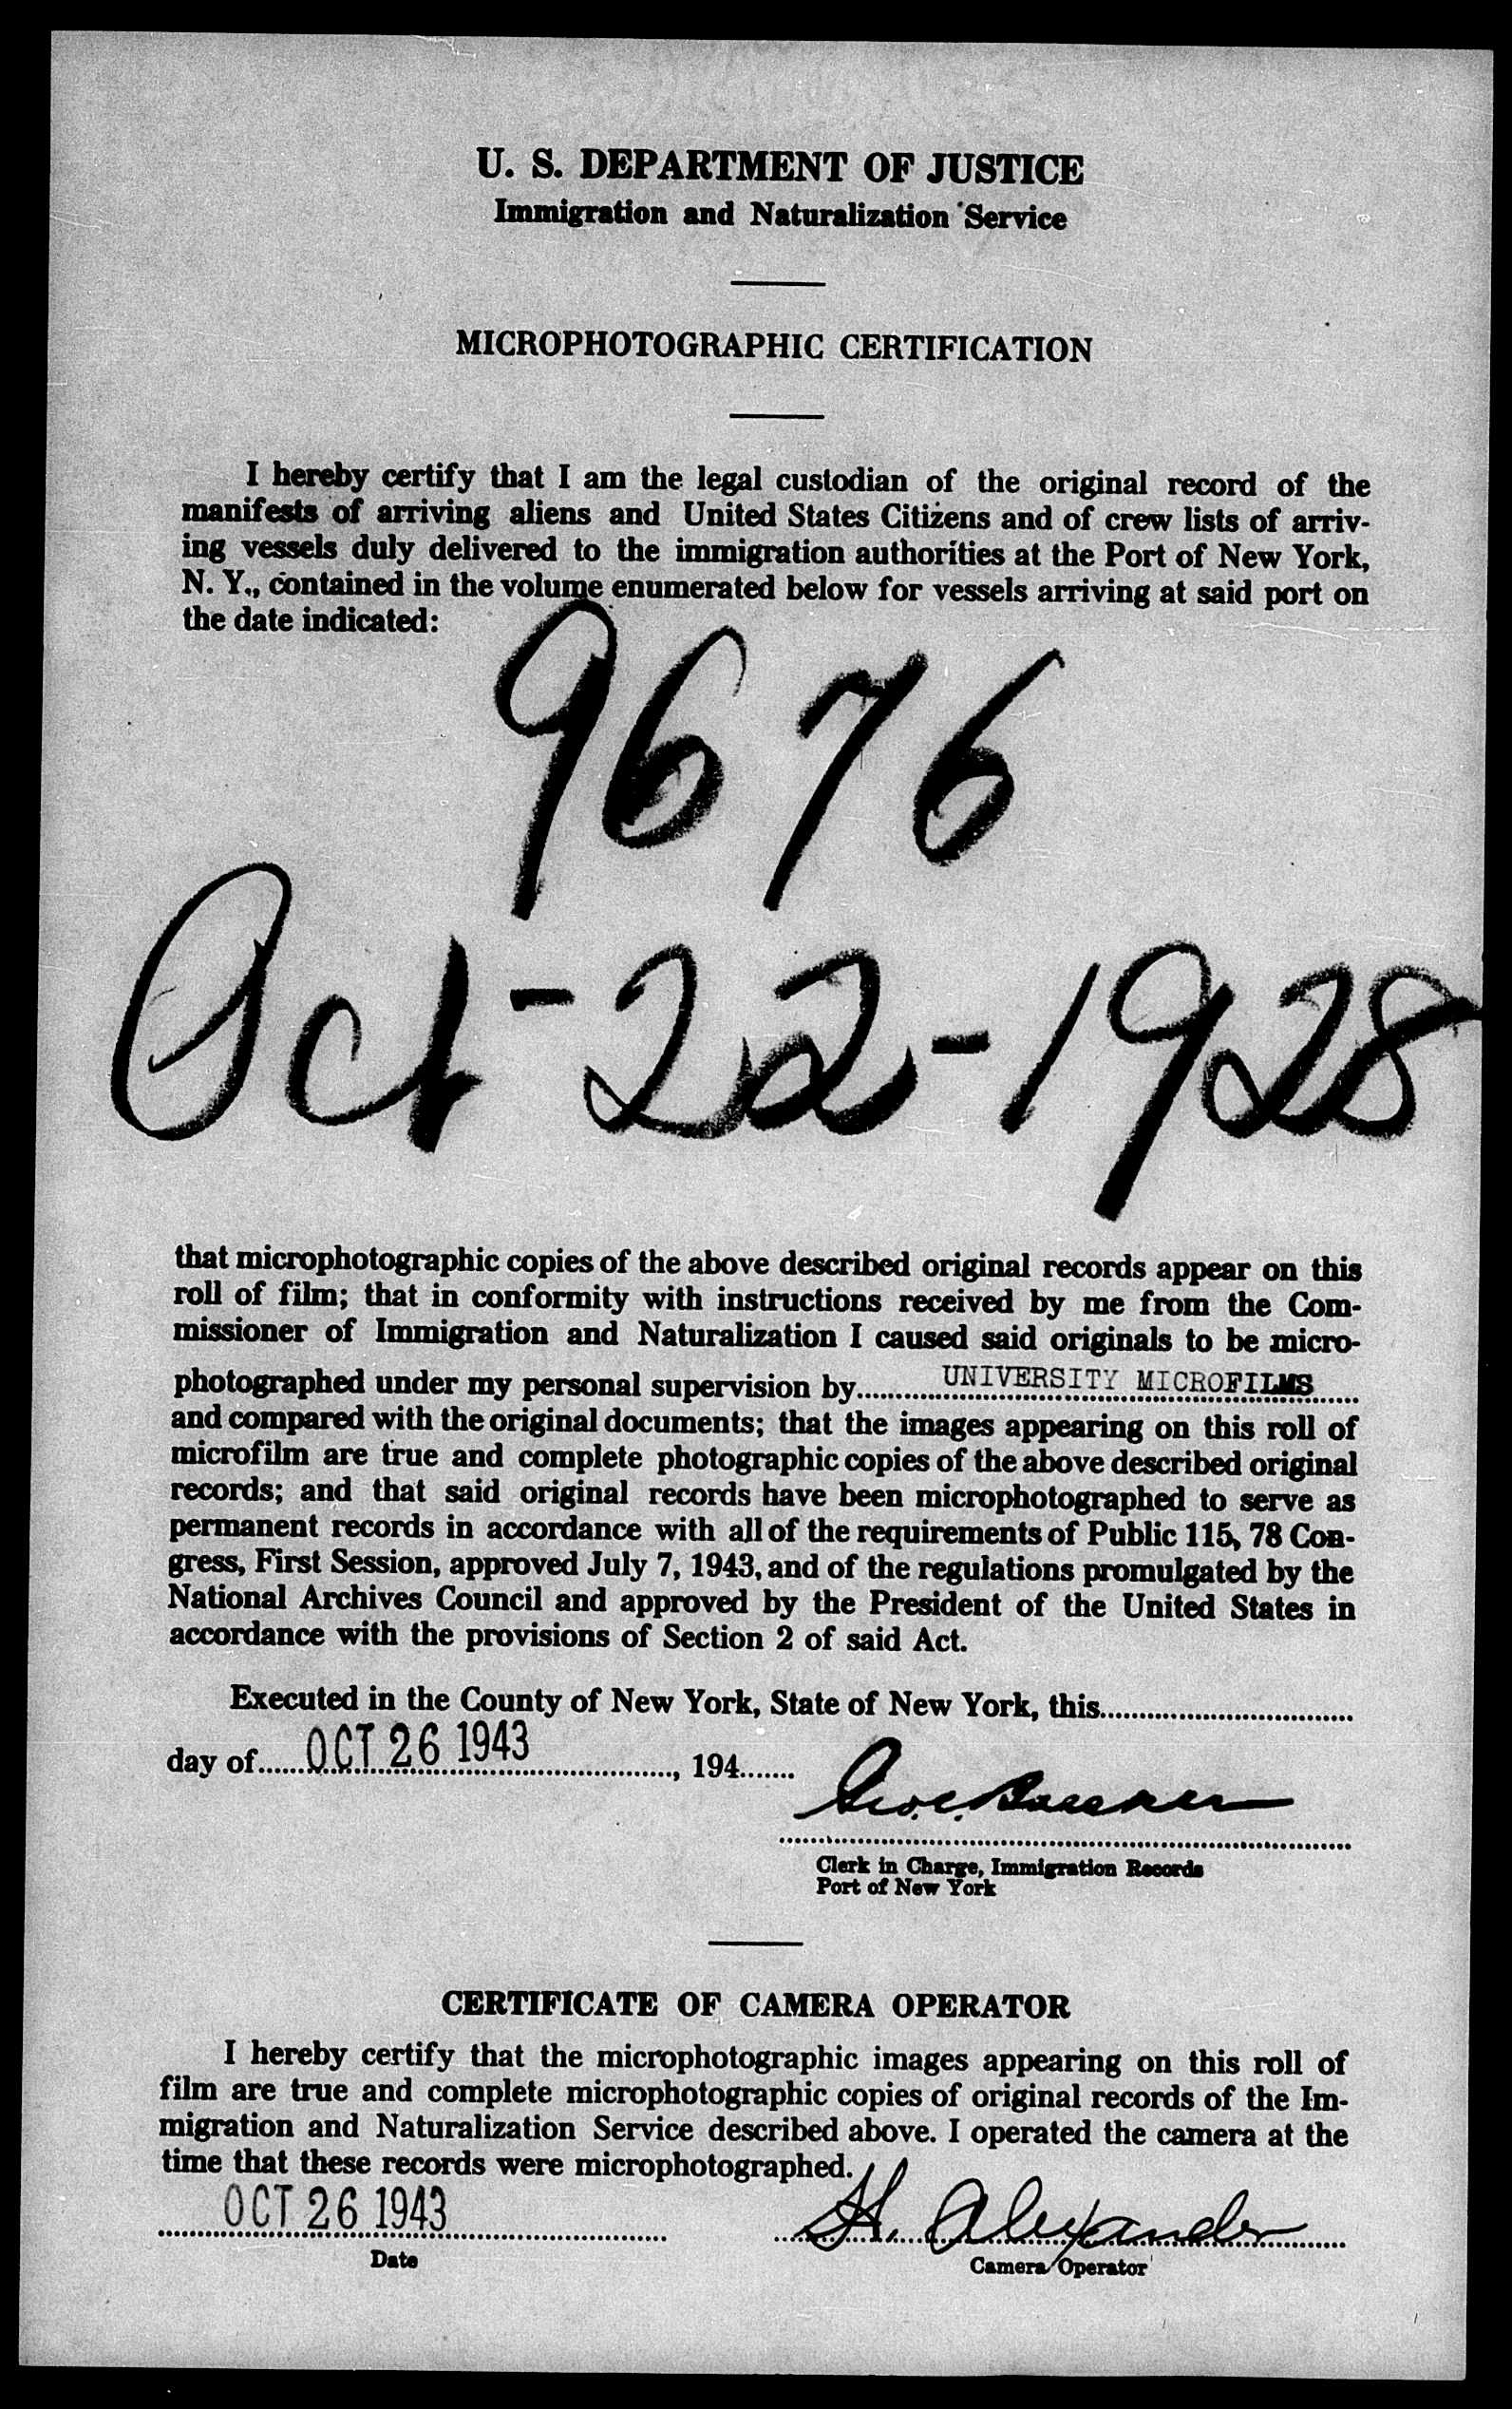 U. S. DEPARTMENT OF JUSTICE
Immigration and Naturalization Service
MICROPHOTOGRAPHIC CERTIFICATION
I hereby certify that I am the legal custodian of the original record of the
manifests of arriving aliens and United States Citizens and of crew lists of arriv-
ing vessels duly delivered to the immigration authorities at the Port of New York,
N. Y., contained in the volume enumerated below for vessels arriving at said port on
the date indicated:
9676
Oct-22-1928
that microphotographic copies of the above described original records appear on this
roll of film; that in conformity with instructions received by me from the Com-
missioner of Immigration and Naturalization I caused said originals to be micro-
photographed under my personal supervision by UNIVERSITY MICROFILMS
and compared with the original documents; that the images appearing on this roll of
microfilm are true and complete photographic copies of the above described original
records; and that said original records have been microphotographed to serve as
permanent records in accordance with all of the requirements of Public 115, 78 Con-
gress, First Session, approved July 7, 1943, and of the regulations promulgated by the
National Archives Council and approved by the President of the United States in
accordance with the provisions of Section 2 of said Act.
Executed in the County of New York, State of New York, this
day of OCT 26 1943, 194
Clerk in Charge, Immigration Records
Port of New York
CERTIFICATE OF CAMERA OPERATOR
I hereby certify that the microphotographic images appearing on this roll of
film are true and complete microphotographic copies of original records of the Im-
migration and Naturalization Service described above. I operated the camera at the
time that these records were microphotographed.
OCT 26 1943 H. Alexander
Date Camera Operator